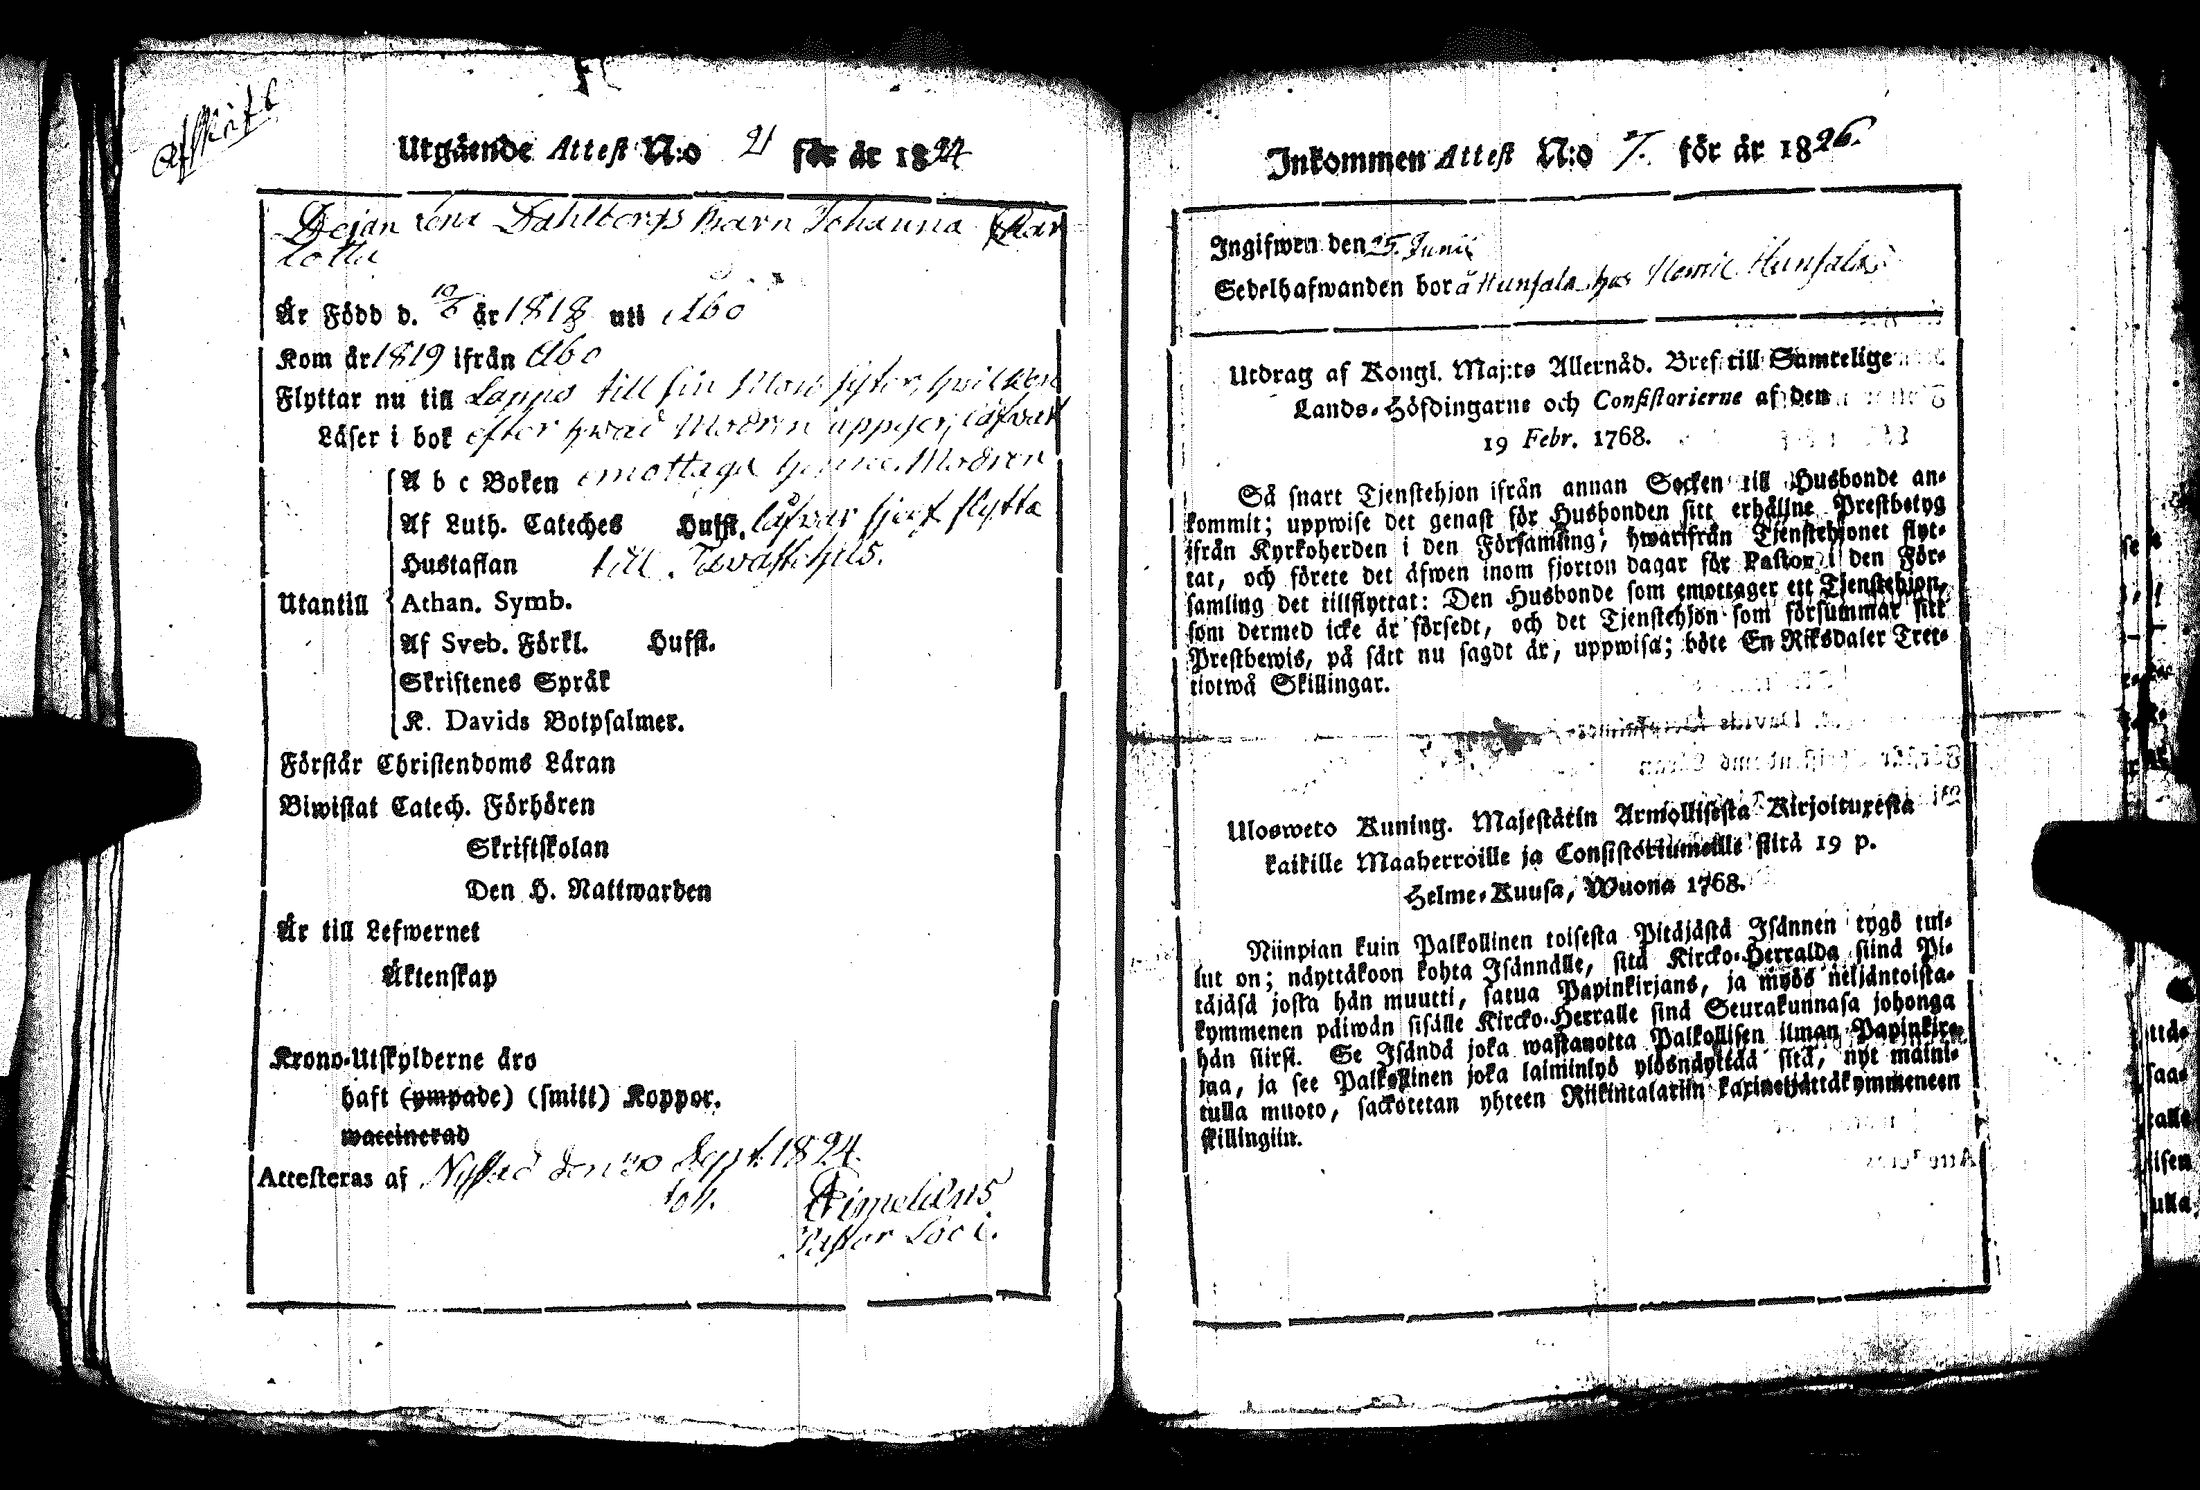 afskrift
Utgående Attest N:o 21 för år 1824
Dejan Lena Dahlbergs Barn Johanna Char
lotta
Är Född d. 10/6 år 1818 uti Åbo
Kom år 1819 ifrån Åbo
Flyttar nu till Lappo till sin Mors syster, hvilken
Läser i bok efter hvad Modren uppger, låfvat
A b c Boken emottaga henne. Modren
Af Luth. Cateches Hufst. låfvar sjelf flytta
Hustaflan till Tavastehus.
Utantill Athan. Symb.
Af Sveb. Förkl. Hufst.
Skriftenes Språk
K. Davids Botpsalmer.
Förstår Christendoms Läran
Biwistat Catech. Förhören
Skriftskolan
Den H. Nattwarden
Är till Lefwernet
Äktenskap
Krono-Utskylderne äro
haft (ympade) (smitt) Koppor.
waccinerad
Attesteras af Nystad den 30 Sept. 1824.
Pastor Loci.
Inkommen Attest N:o 7. för år 1826.
Ingifwen den 25. Junii
Sedelhafwanden bor å Hunsala hos Hunsala
Utdrag af Kongl. Maj:ts Allernåd. Bref till Samtelige
Lands-Höfdingarne och Consistorierne af den
19 Febr. 1768.
Så snart Tjenstehjon ifrån annan Socken till Husbonde an-
kommit; uppwise det genast för Husbonden sitt erhållne Prestbetyg
ifrån Kyrkoherden i den Församling, hwarifrån Tjenstehjonet flyt-
tat, och förete det äfwen inom fjorton dagar för Pastor i den För-
samling det tillflyttat: Den Husbonde som emottager ett Tjenstehjon,
som dermed icke är försedt, och det Tjenstehjon som försummar sitt
Prestbewis, på sätt nu sagdt är, uppwisa; böte En Riksdaler Tret-
tiotwå Skillingar.
Ulosweto Kuning. Majestätin Armollisesta Kirjoituxesta
kaikille Maaherroille ja Consistoriumeille siitä 19 p.
Helme-Kuusa, Wuona 1768.
Niinpian kuin Palkollinen toisesta Pitäjästä Isännen tygö tul-
lut on; näyttäkoon kohta Isännälle, sitä Kircko-Herralda siinä Pi-
täjäsä josta hän muutti, saatua Papinkirjans, ja myös neljäntoista-
kymmenen päiwän sisälle Kircko-Herralle siinä Seurakunnasa johonga
hän siirsi. Se Isändä joka wastanotta Palkollisen ilman Papinkir-
jaa, ja see Palkollinen joka laiminlyö ylösnäyttää sitä, nyt maini-
tulla muoto, sackotetan yhteen Riikintalariin kaxineljättäkymmeneen
skillingiin.